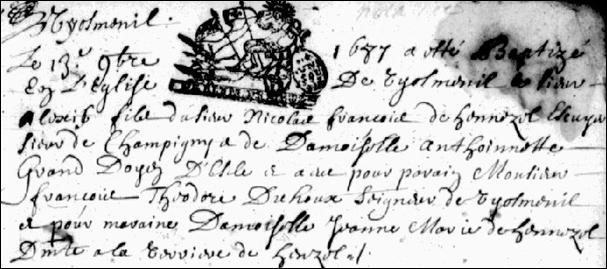 Tyolmenil.
Le 13.e 9bre 1687 a esté Baptizé
En L'Eglise De Tyolmenil le sieur
alexis fils du sieur Nicolas francois de hennezel Escuyer
sieur de Champigny & de Damoiselle Anthoinnette
Grand Doyen D'Esle e a eue pour parain Monsieur
francois Theodore Duhoux Seigneur de Tyolmenil
e pour maraine Damoiselle Jeanne Marie de hennezel
Dmte a la verriere de henzel